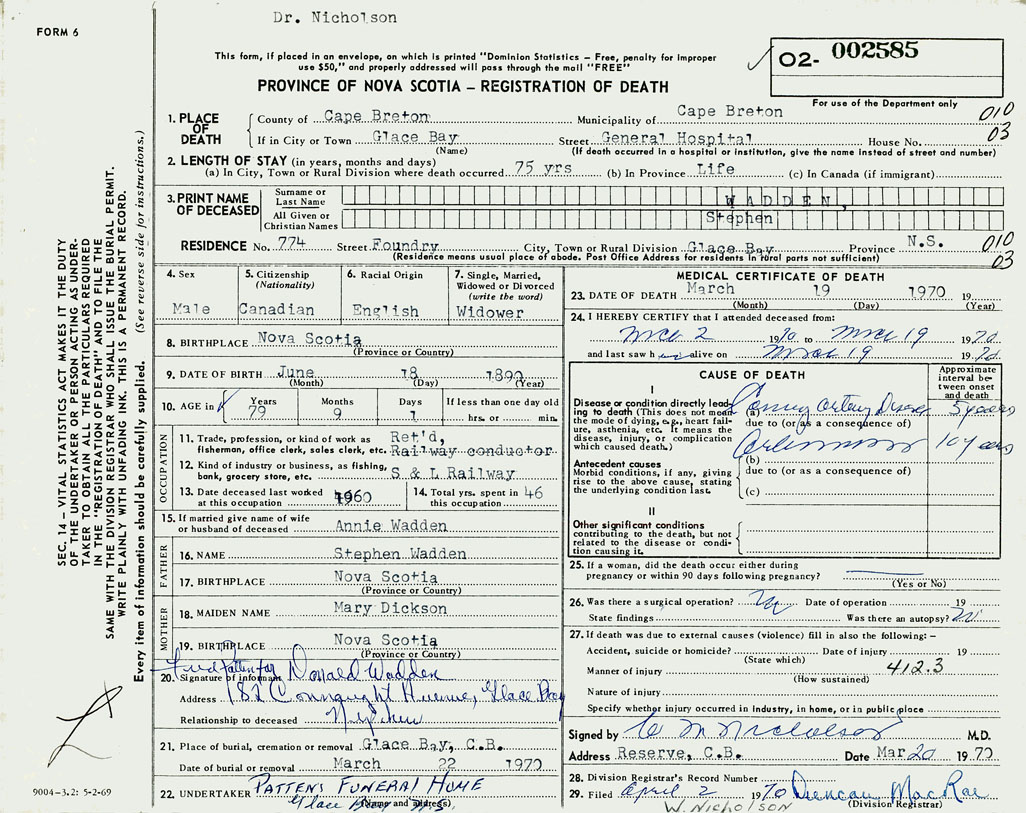 Dr. Nicholson
FORM 6
This form, if placed in an envelope, on which is printed "Dominion Statistics – Free, penalty for improper
use $50," and properly addressed will pass through the mail "FREE"
O2- 002585
PROVINCE OF NOVA SCOTIA – REGISTRATION OF DEATH
For use of the Department only
1. PLACE OF DEATH
County of Cape Breton Municipality of Cape Breton 010
If in City or Town Glace Bay Street General Hospital House No. 03
(Name) (If death occurred in a hospital or institution, give the name instead of street and number)
2. LENGTH OF STAY (in years, months and days)
(a) In City, Town or Rural Division where death occurred 75 yrs (b) In Province Life (c) In Canada (if immigrant)
3. PRINT NAME OF DECEASED
Surname or Last Name WADDEN,
All Given or Christian Names Stephen
RESIDENCE No. 774 Street Foundry City, Town or Rural Division Glace Bay Province N.S. 010
(Residence means usual place of abode. Post Office Address for residents in rural parts not sufficient) 03
4. Sex
Male
5. Citizenship
(Nationality)
Canadian
6. Racial Origin
English
7. Single, Married,
Widowed or Divorced
(write the word)
Widower
8. BIRTHPLACE Nova Scotia
(Province or Country)
9. DATE OF BIRTH June 18 1890
(Month) (Day) (Year)
10. AGE in Years Months Days If less than one day old
79 9 1 hrs. or min.
OCCUPATION
11. Trade, profession, or kind of work as Ret'd,
fisherman, office clerk, sales clerk, etc. Railway conductor
12. Kind of industry or business, as fishing,
bank, grocery store, etc. S & L Railway
13. Date deceased last worked
at this occupation 1960
14. Total yrs. spent in
this occupation 46
15. If married give name of wife
or husband of deceased Annie Wadden
FATHER
16. NAME Stephen Wadden
17. BIRTHPLACE Nova Scotia
(Province or Country)
MOTHER
18. MAIDEN NAME Mary Dickson
19. BIRTHPLACE Nova Scotia
(Province or Country)
Fred Patten for
20. Signature of informant Donald Wadden
Address 182 Connaught Avenue, Glace Bay
Relationship to deceased Nephew
21. Place of burial, cremation or removal Glace Bay, C.B.
Date of burial or removal March 22 1970
22. UNDERTAKER PATTENS FUNERAL HOME
Glace Bay N.S.
(Name and address)
MEDICAL CERTIFICATE OF DEATH
23. DATE OF DEATH March 19 1970 19
(Month) (Day) (Year)
24. I HEREBY CERTIFY that I attended deceased from:
2 1970 to 19 1970
and last saw h alive on 19 1970
CAUSE OF DEATH
Approximate
interval be-
tween onset
and death
I
Disease or condition directly lead-
ing to death (This does not mean
the mode of dying, e.g., heart fail-
ure, asthenia, etc. It means the
disease, injury, or complication
which caused death.)
(a) Artery Disease 5 years
due to (or as a consequence of)
(b) 10 years
Antecedent causes
Morbid conditions, if any, giving
rise to the above cause, stating
the underlying condition last.
due to (or as a consequence of)
(c)
II
Other significant conditions
contributing to the death, but not
related to the disease or condi-
tion causing it.
25. If a woman, did the death occur either during
pregnancy or within 90 days following pregnancy?
(Yes or No)
26. Was there a surgical operation? Date of operation 19
State findings Was there an autopsy?
27. If death was due to external causes (violence) fill in also the following: –
Accident, suicide or homicide? Date of injury 19
(State which)
Manner of injury 412.3
(How sustained)
Nature of injury
Specify whether injury occurred in industry, in home, or in public place
Signed by C M Nicholson M.D.
Address Reserve, C.B. Date Mar 20 1970
28. Division Registrar's Record Number
29. Filed April 2 1970 Duncan MacRae
(Division Registrar)
W. NICHOLSON
SEC. 14 – VITAL STATISTICS ACT MAKES IT THE DUTY
OF THE UNDERTAKER OR PERSON ACTING AS UNDER-
TAKER TO OBTAIN ALL THE PARTICULARS REQUIRED
IN THE "REGISTRATION OF DEATH" AND TO FILE THE
SAME WITH THE DIVISION REGISTRAR WHO SHALL ISSUE THE BURIAL PERMIT.
WRITE PLAINLY WITH UNFADING INK. THIS IS A PERMANENT RECORD.
Every item of information should be carefully supplied. (See reverse side for instructions.)
9004-3.2: 5-2-69